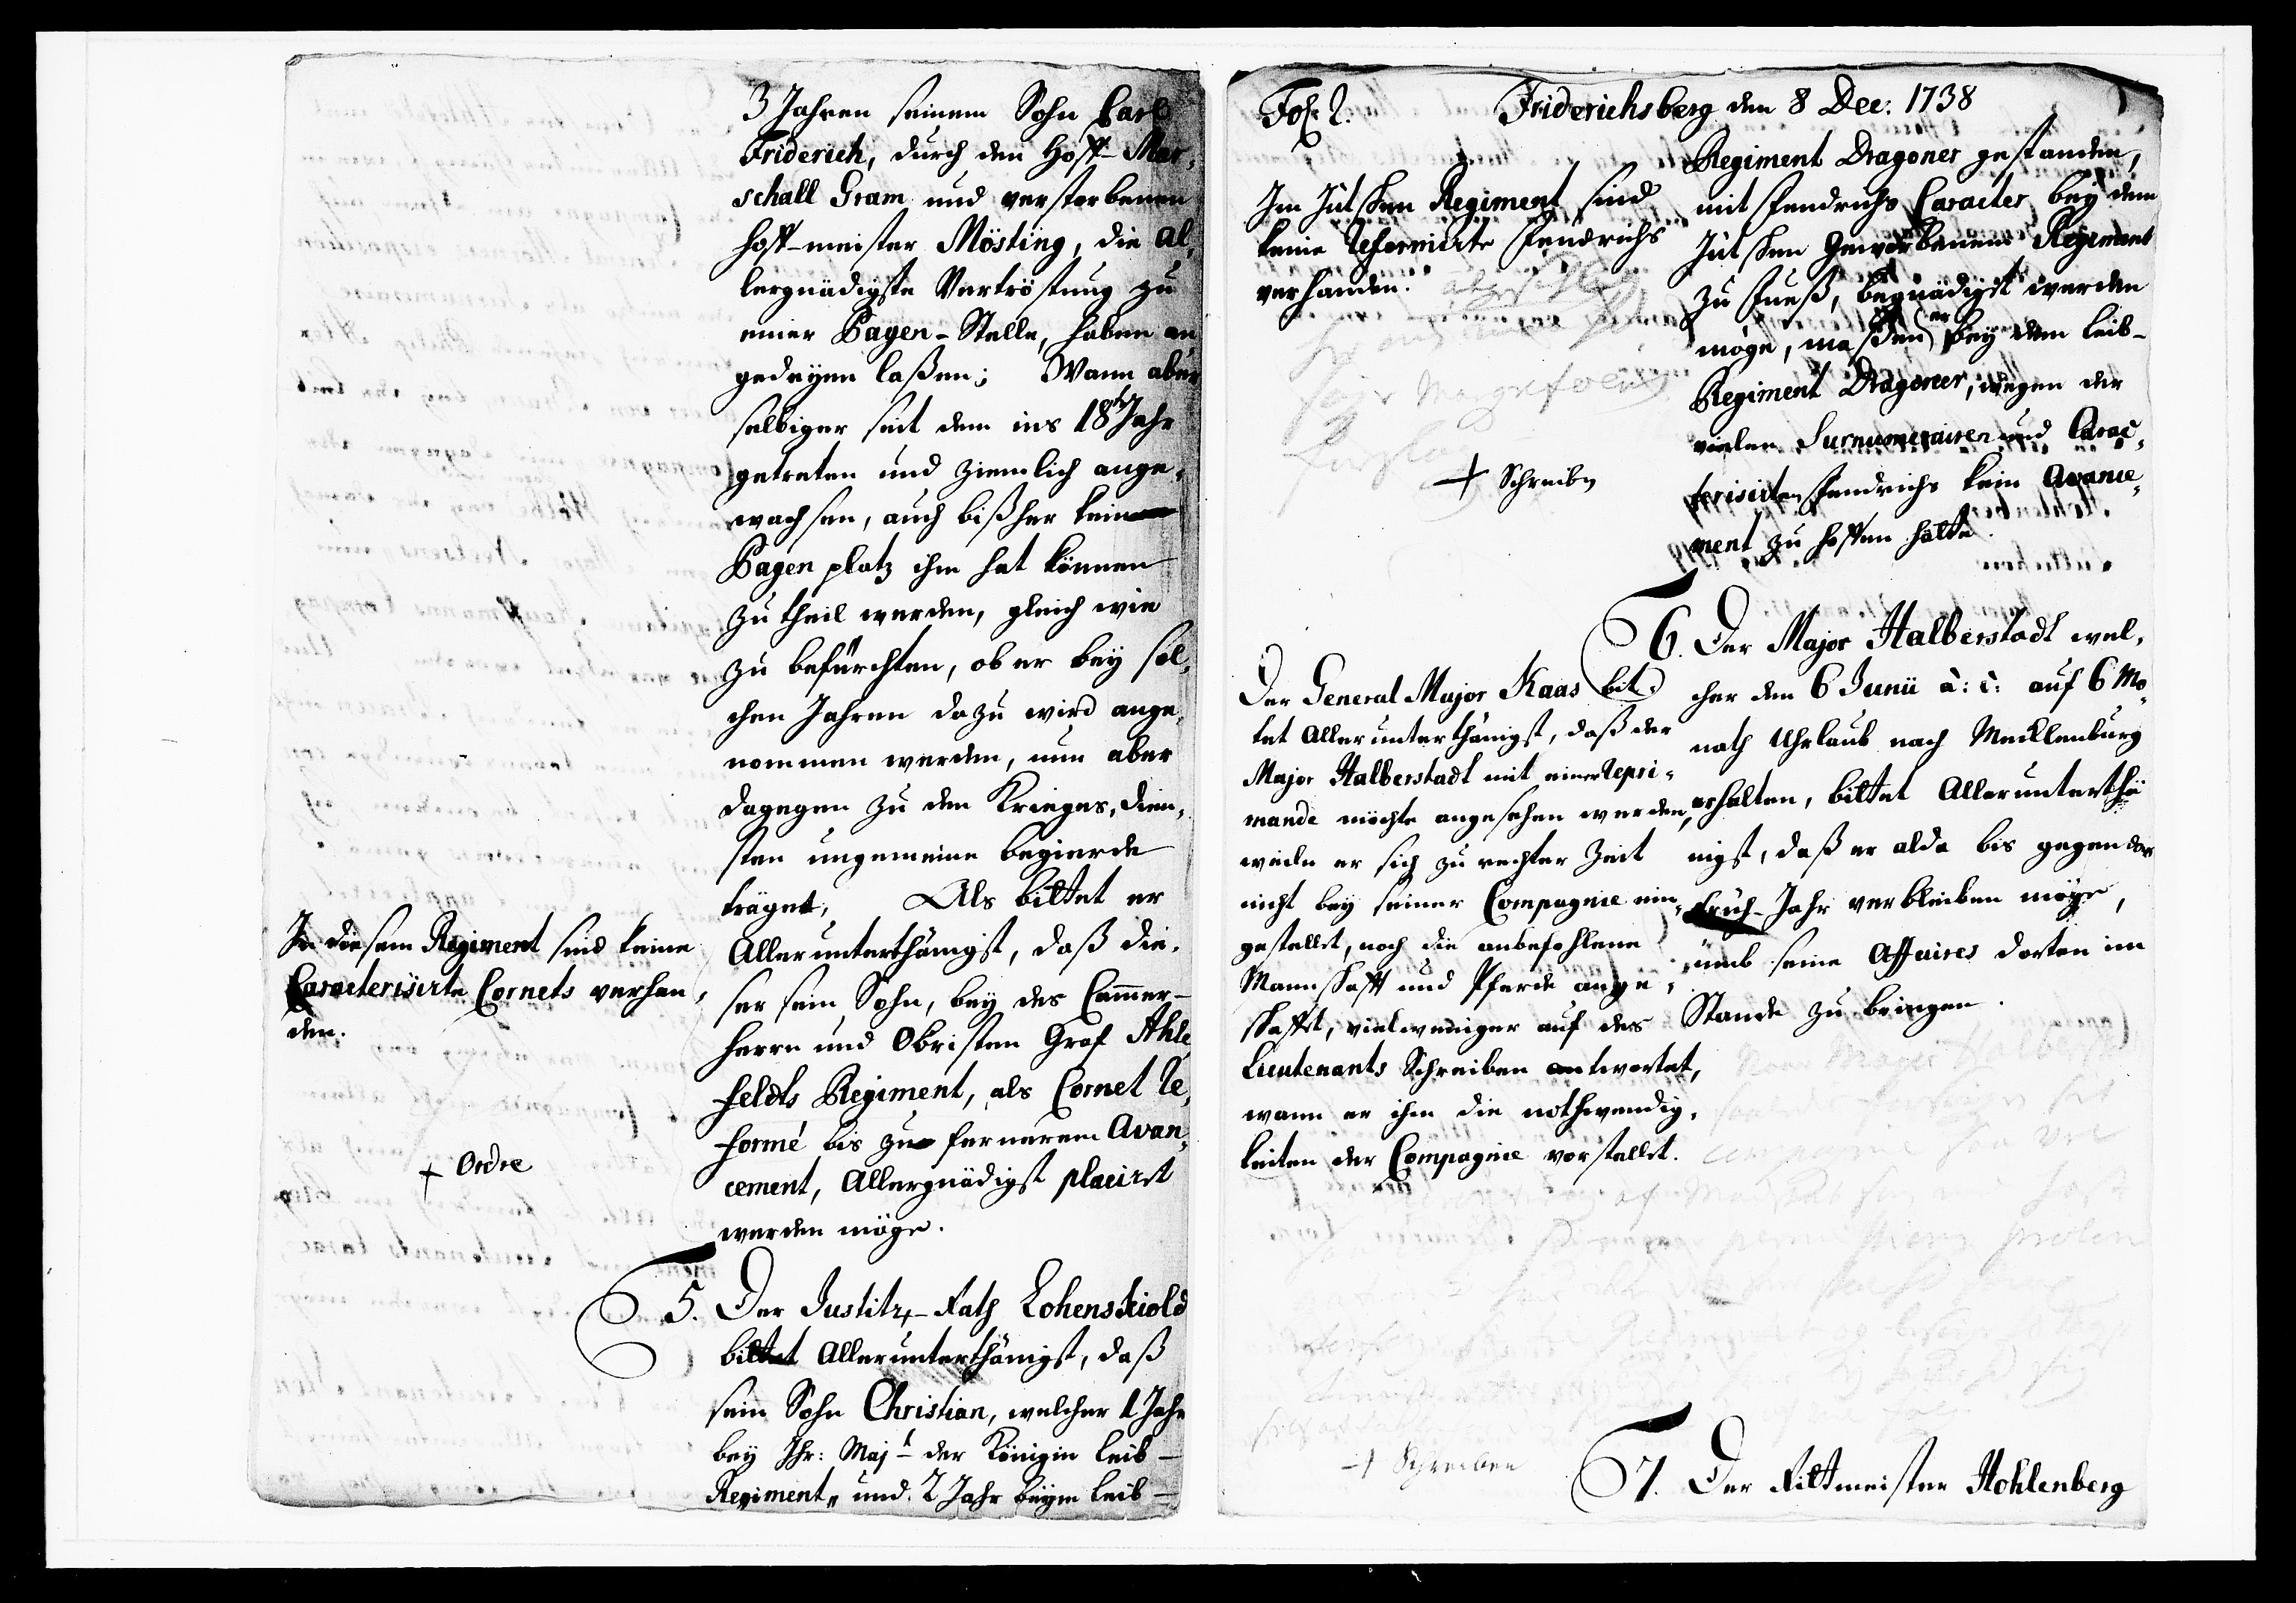 3 Jahren seinem Sohn Carl
Friderich, durch den Hoff-Mar„
schall Gram und verstorbenen
Hoff-meister Mösting, die Al„
lergnädigste Vertröstung zu
einer Pagen-Stelle, haben an
gedeyen laßen; Wann aber
selbiger seit dem ins 18te Jahr
getreten und ziemlich ange„
wachsen, auch bißher kein
Pagen platz ihm hat können
zu theil werden, gleich wie
zu befürchten, ob er bey sol„
chen Jahren dazu wird ange„
nommen werden, nun aber
dagegen zu den Krieges„dien„
sten ungemeine begierde
träget, Als bittet er
Allerunterthänigst, daß die„
ser sein Sohn, bey des Cammer-
herrn und Obristen Graf Ahle
feldts Regiment, als Cornet re„
formé bis zu fernerem Avan„
cement, Allergnädigst placiret
werden möge.
In diesem Regiment sind keine
Caracterisirte Cornets verhan„
den.
+ Ordre
5. Der Justitz-Rath Lohenskiold
bittet Allerunterthänigst, daß
sein Sohn Christian, welcher 1 Jahr
bey Ihr: Majt der Königin Leib-
Regiment„ und 2 Jahr beym Leib-
Fol: 2.
Friderichsberg den 8 Dec: 1738
Regiment Dragoner gestanden,
mit Fendrichs Caracter bey dem
Jütschen Geworbenen Regiment
zu Fueß, begnädigt werden
möge, maßen er bey dem Leib-
Regiment Dragoner, wegen der
vielen Surnumerairen und Carac„
terisirten Fendrichs kein Avance„
ment zu hoffen hätte.
Im Jütschen Regiment sind
keine Reformirte Fendrichs
verhanden.
+ Schreiben
6. Der Major Halberstadt wel„
cher den 6 Junii a: c: auf 6 Mo„
nath Uhrlaub nach Mecklenburg
erhalten, bittet Allerunterthä
nigst, daß er alda bis gegen das
Früh-Jahr verbleiben möge,
umb seine Affaires dorten im
Stande zu bringen.
Der General Major Kaas bit„
tet Allerunterthänigst, daß der
Major Halberstadt mit einer repri„
mande möchte angesehen werden,
weile er sich zu rechter Zeit
nicht bey seiner Compagnie ein„
gestellet, noch die anbefohlene
Mannschafft und Pferde ange„
schafft, vielweniger auf des
Lieutenants Schreiben antwortet,
wann er ihm die nothwendig„
keiten der Compagnie vorstellet.
+ Schreiben
7. Der Rittmeister Hohlenberg